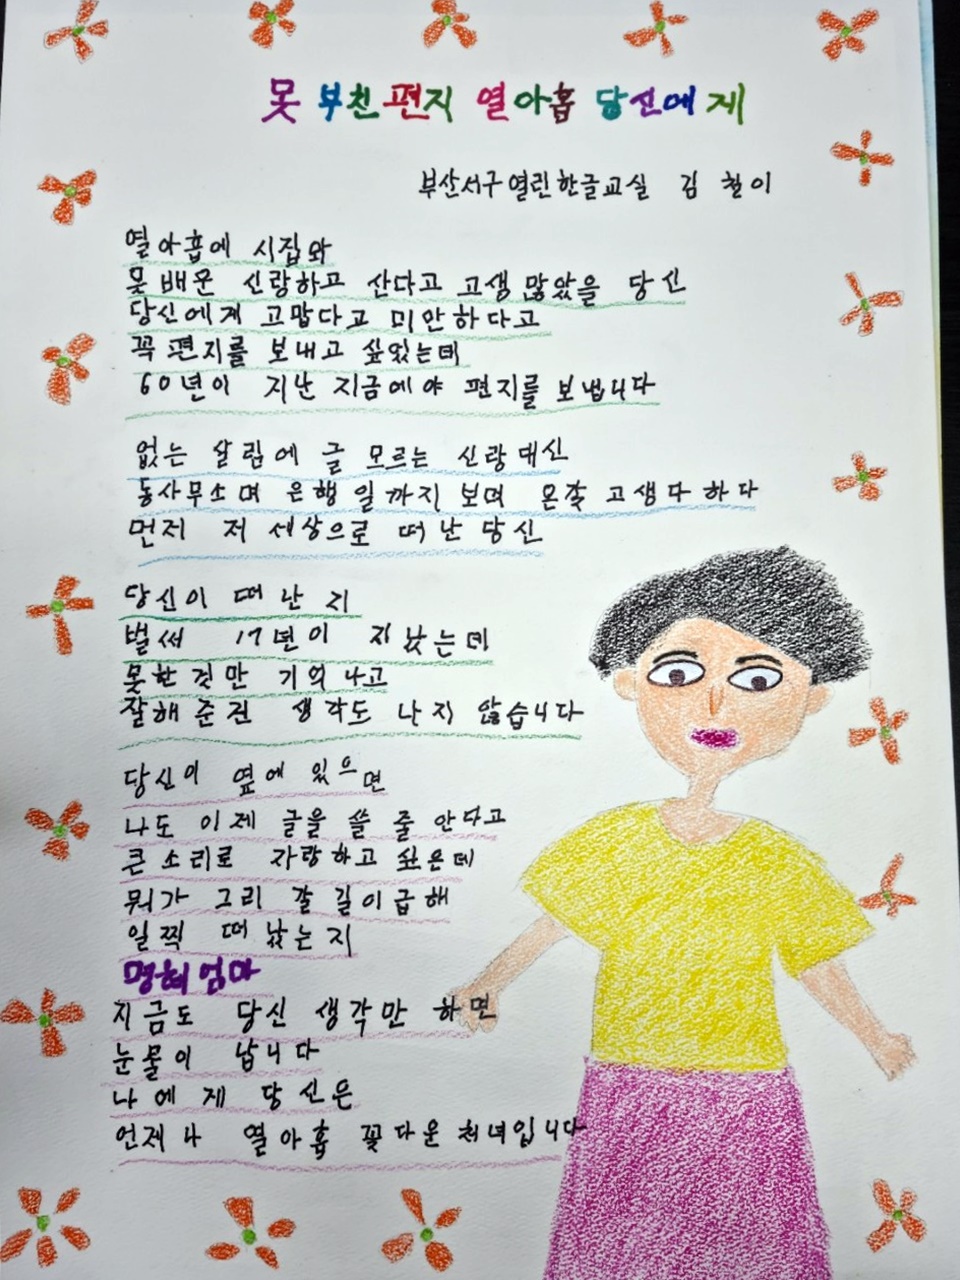 못 부친 편지 열아홉 당신에게
부산서구열린한글교실 김 철이
열아홉에 시집와
못배운 신랑하고 산다고 고생많았을 당신
당신에게 고맙다고 미안하다고
꼭 편지를 보내고 싶었는데
60년이 지난 지금에야 편지를 보냅니다
없는 살림에 글 모르는 신랑대신
동사무소며 은행일까지 보며 온갖 고생다하다
먼저 저 세상으로 떠난당신
당신이 떠난지
벌써 17년이 지났는데
못한것만 기억나고
잘해준건 생각도 나지 않습니다
당신이 옆에 있으면
나도 이제 글을 쓸 줄 안다고
큰소리로 자랑하고 싶은데
뭐가 그리 갈길이급해
일찍 떠났는지
명혜엄마
지금도 당신 생각만 하면
눈물이 납니다
나에게 당신은
언제나 열아홉 꽃다운처녀입니다